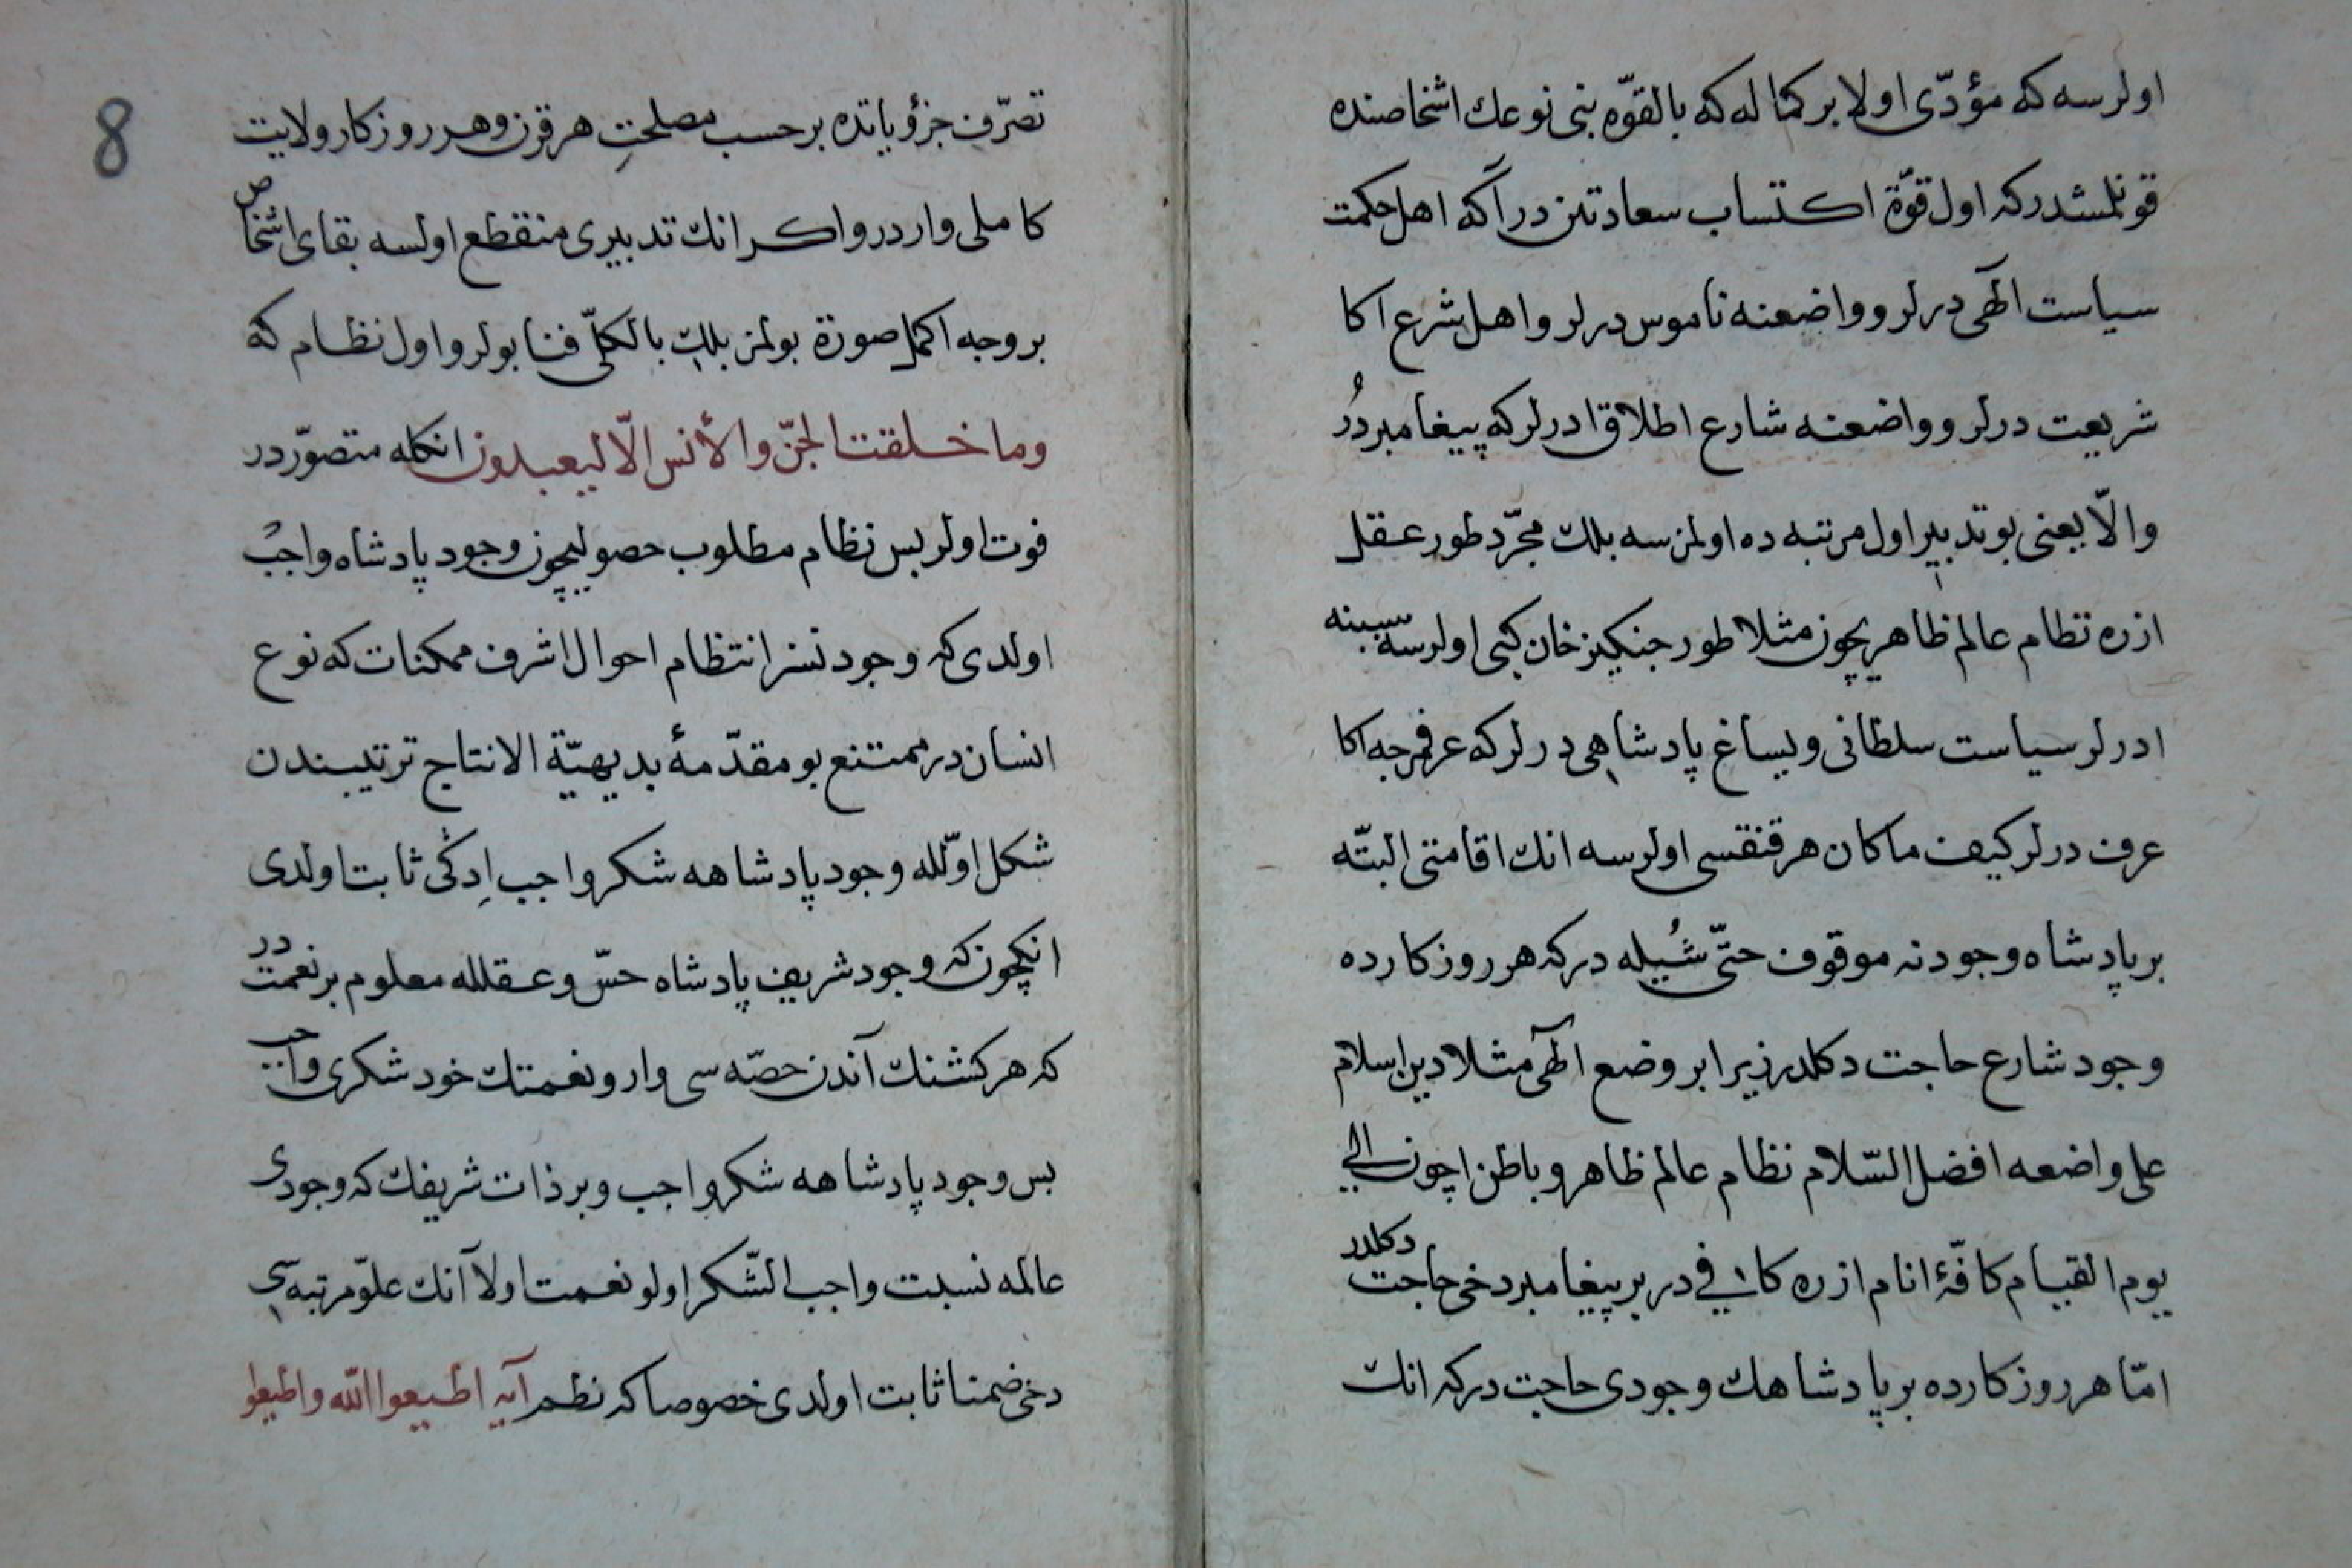 اولرسه كه مؤدّى اولا بر كماله كه بالقوّه بنى نوعك اشخاصنده
قونلمشدر كه اول قوّة اكتساب سعادتين در آكه اهل حكمت
سياست الهى درلر و واضعنه ناموس درلر و اهل شرع اكا
شريعت درلر و واضعنه شارع اطلاق ادرلر كه پيغامبردُر
والّا يعنى بو تدبير اول مرتبه ده اولمزسه بلك مجرّد طور عقل
ازره نظام عالم ظاهريچون مثلا طور جنكيز خان كبى اولرسه سببنه
ادرلر سياست سلطانى و يساغ پادشاهى درلر كه عرفمزجه اكا
عرف درلر كيف ما كان هر قنقسى اولرسه انك اقامتى البتّه
بر پادشاه وجودنه موقوف حتّى شُيله در كه هر روزكارده
وجود شارع حاجت دكلدر زيرا بر وضع الهى مثلا دين اسلام
على واضعه افضل السّلام نظام عالم ظاهر و باطن اچون الى
يوم القيام كافّۀ انام ازره كافي در بر پيغامبر دخى حاجت دكلدر
امّا هر روزكارده بر پادشاهك وجودى حاجت در كه انك
8
تصرّف جزؤياتده بر حسب مصلحتِ هر قرن و هر روزكار ولايت
كاملى واردر و اكر انك تدبيرى منقطع اولسه بقاى اشخاص
بر وجه اكمل صورة بولمز بلك بالكلّى فنا بولر و اول نظام كه
وما خلقت الجنّ والأنس الّا ليعبدون انكله متصوّردر
فوت اولر بس نظام مطلوب حصوليچون وجود پادشاه واجب
اولدى كه وجودنسز انتظام احوال اشرف ممكنات كه نوع
انسان در ممتنع بو مقدّمۀ بديهيّة الانتاج ترتيبندن
شكل اوّلله وجود پادشاهه شكر واجب اِدكى ثابت اولدى
انكچون كه وجود شريف پادشاه حسّ و عقلله معلوم بر نعمت در
كه هر كشنك آندن حصّه سى وار و نعمتك خود شكرى واجب
بس وجود پادشاهه شكر واجب و بر ذات شريفك كه وجودى
عالمه نسبت واجب الشّكر اولو نعمت اولا آنك علوّ مرتبه سى
دخى ضمنا ثابت اولدى خصوصا كه نظم آيه اطيعوا الله واطيعوا